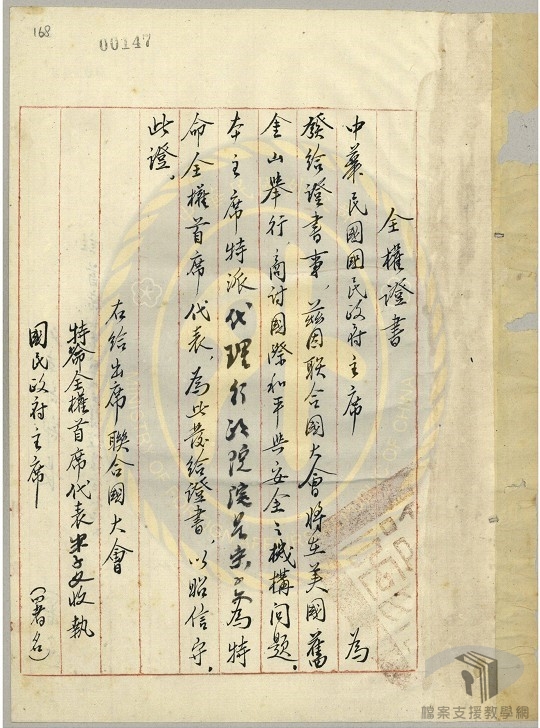 168
00147
全權證書
中華民國國民政府主席 為
發給證書事，茲因聯合國大會將在美國舊
金山舉行，商討國際和平與安全之機構問題。
本主席特派代理行政院院長宋子文為特
命全權首席代表，為此發給證書，以昭信守，
此證。
右給出席聯合國大會
特命全權首席代表宋子文收執
國民政府主席 （署名）
檔案支援教學網